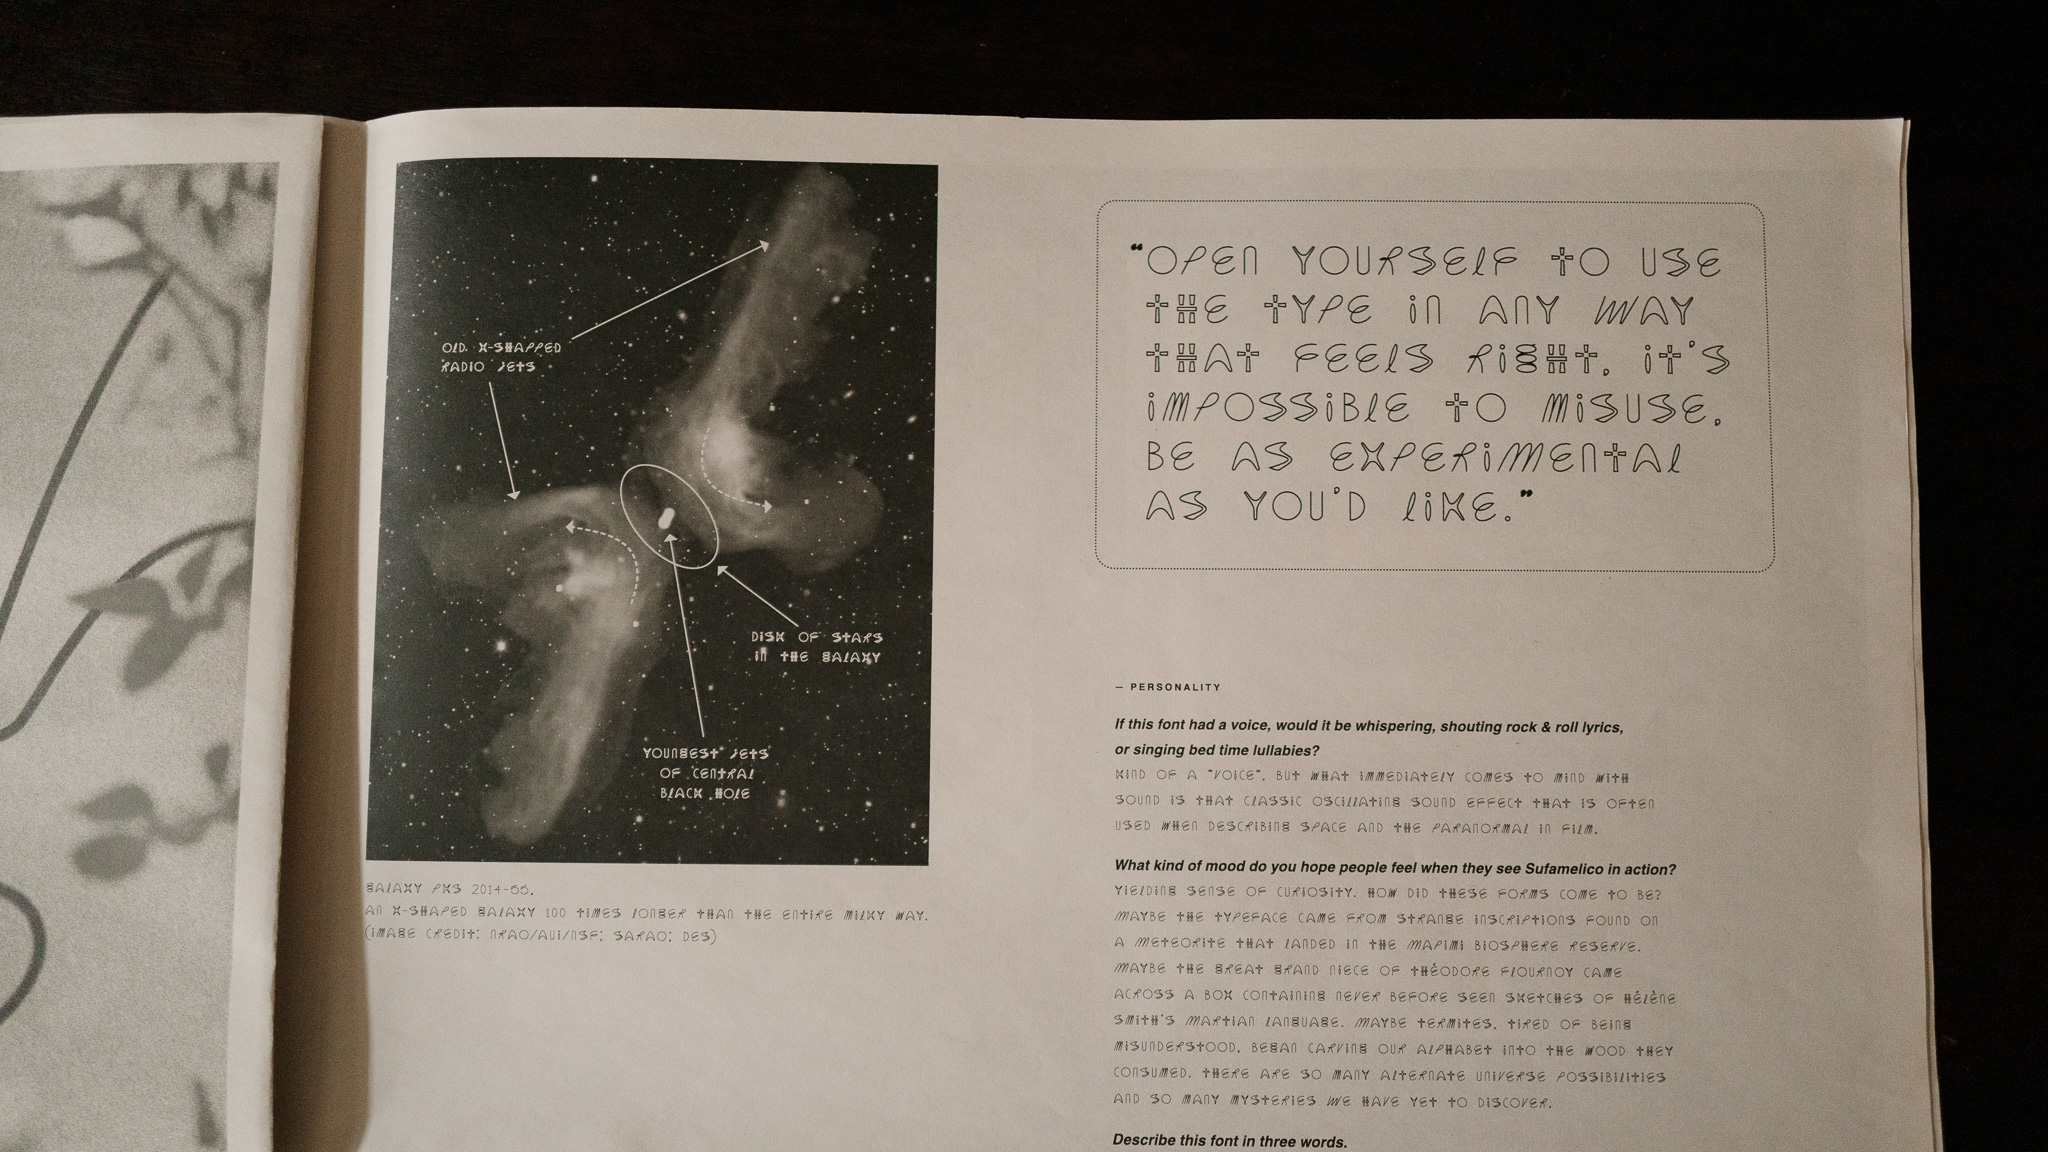 OLD X-SHAPPED
RADIO JETS
DISK OF STARS
IN THE GALAXY
YOUNGEST JETS
OF CENTRAL
BLACK HOLE
GALAXY PKS 2014-55.
AN X-SHAPED GALAXY 100 TIMES LONGER THAN THE ENTIRE MILKY WAY.
(IMAGE CREDIT: NRAO/AUI/NSF; SARAO; DES)
“OPEN YOURSELF TO USE
THE TYPE IN ANY WAY
THAT FEELS RIGHT. IT’S
IMPOSSIBLE TO MISUSE.
BE AS EXPERIMENTAL
AS YOU’D LIKE.”
— PERSONALITY
If this font had a voice, would it be whispering, shouting rock & roll lyrics,
or singing bed time lullabies?
KIND OF A "VOICE", BUT WHAT IMMEDIATELY COMES TO MIND WITH
SOUND IS THAT CLASSIC OSCILLATING SOUND EFFECT THAT IS OFTEN
USED WHEN DESCRIBING SPACE AND THE PARANORMAL IN FILM.
What kind of mood do you hope people feel when they see Sufamelico in action?
YIELDING SENSE OF CURIOSITY. HOW DID THESE FORMS COME TO BE?
MAYBE THE TYPEFACE CAME FROM STRANGE INSCRIPTIONS FOUND ON
A METEORITE THAT LANDED IN THE MAPIMI BIOSPHERE RESERVE.
MAYBE THE GREAT GRAND NIECE OF THÉODORE FLOURNOY CAME
ACROSS A BOX CONTAINING NEVER BEFORE SEEN SKETCHES OF HÉLÈNE
SMITH'S MARTIAN LANGUAGE. MAYBE TERMITES, TIRED OF BEING
MISUNDERSTOOD, BEGAN CARVING OUR ALPHABET INTO THE WOOD THEY
CONSUMED. THERE ARE SO MANY ALTERNATE UNIVERSE POSSIBILITIES
AND SO MANY MYSTERIES WE HAVE YET TO DISCOVER.
Describe this font in three words.